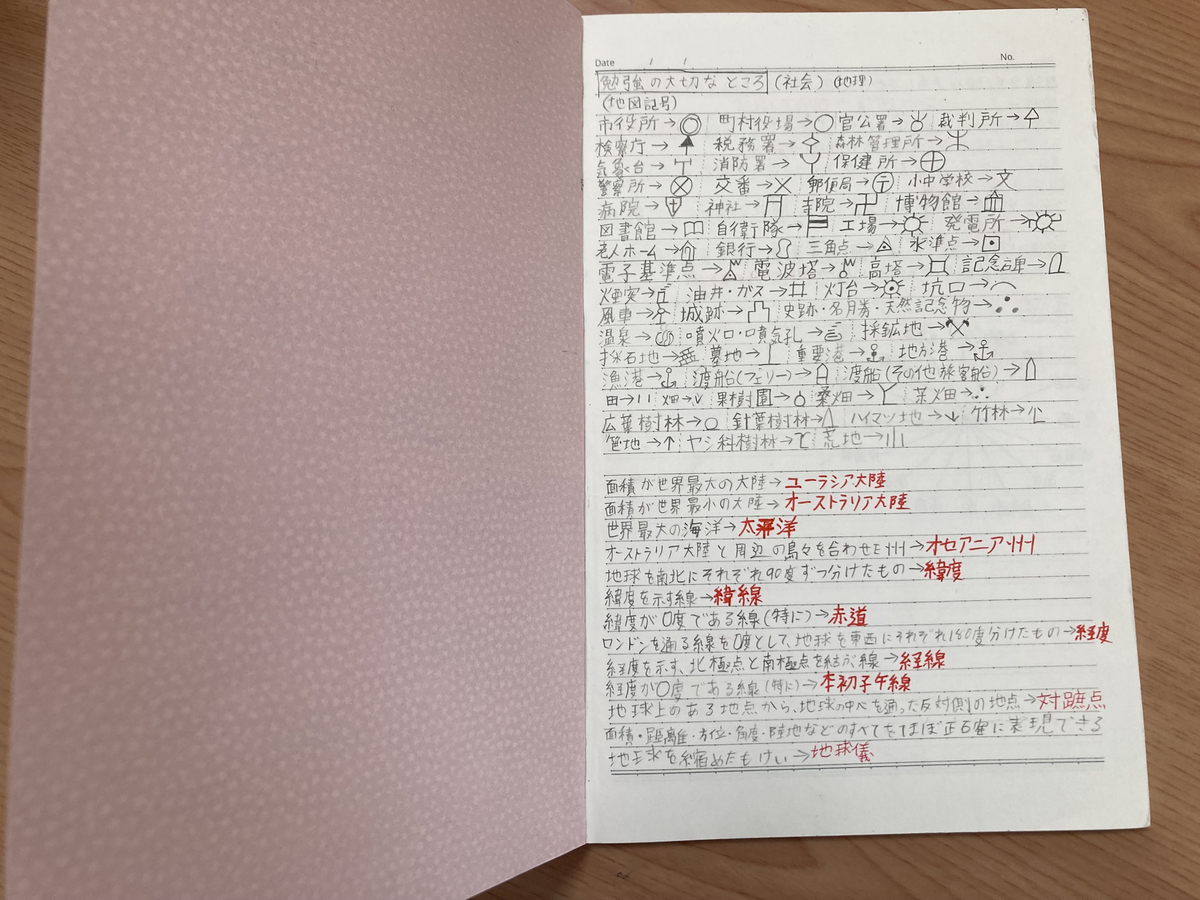 Date / / No.
勉強の大切なところ (社会) (地理)
(地図記号)
市役所→◎ 町村役場→○ 官公署→ 裁判所→
検察庁→ 税務署→ 森林管理所→
気象台→ 消防署→ 保健所→⊕
警察所→⊗ 交番→X 郵便局→〶 小中学校→文
病院→ 神社→ 寺院→卍 博物館→
図書館→ 自衛隊→ 工場→ 発電所→
老人ホーム→ 銀行→ 三角点→ 水準点→
電子基準点→ 電波塔→ 高塔→ 記念碑→
煙突→ 油井・ガス→ 灯台→ 坑口→
風車→ 城跡→ 史跡・名勝・天然記念物→∴
温泉→ 噴火口・噴気孔→ 採鉱地→
採石地→ 墓地→ 重要港→ 地方港→
漁港→ 渡船(フェリー)→ 渡船(その他旅客船)→
田→ 畑→ 果樹園→ 桑畑→ 茶畑→∴
広葉樹林→ 針葉樹林→ ハイマツ地→ 竹林→
笹地→↑ ヤシ科樹林→ 荒地→
面積が世界最大の大陸→ユーラシア大陸
面積が世界最小の大陸→オーストラリア大陸
世界最大の海洋→太平洋
オーストラリア大陸と周辺の島々を合わせた州→オセアニア州
地球を南北にそれぞれ90度ずつ分けたもの→緯度
緯度を示す線→緯線
緯度が0度である線(特に)→赤道
ロンドンを通る線を0度として、地球を東西にそれぞれ180度分けたもの→経度
経度を示す、北極点と南極点を結ぶ線→経線
経度が0度である線(特に)→本初子午線
地球上のある地点から、地球の中心を通った反対側の地点→対蹠点
面積・距離・方位・角度・陸地などのすべてをほぼ正確に表現できる
地球を縮めたもけい→地球儀